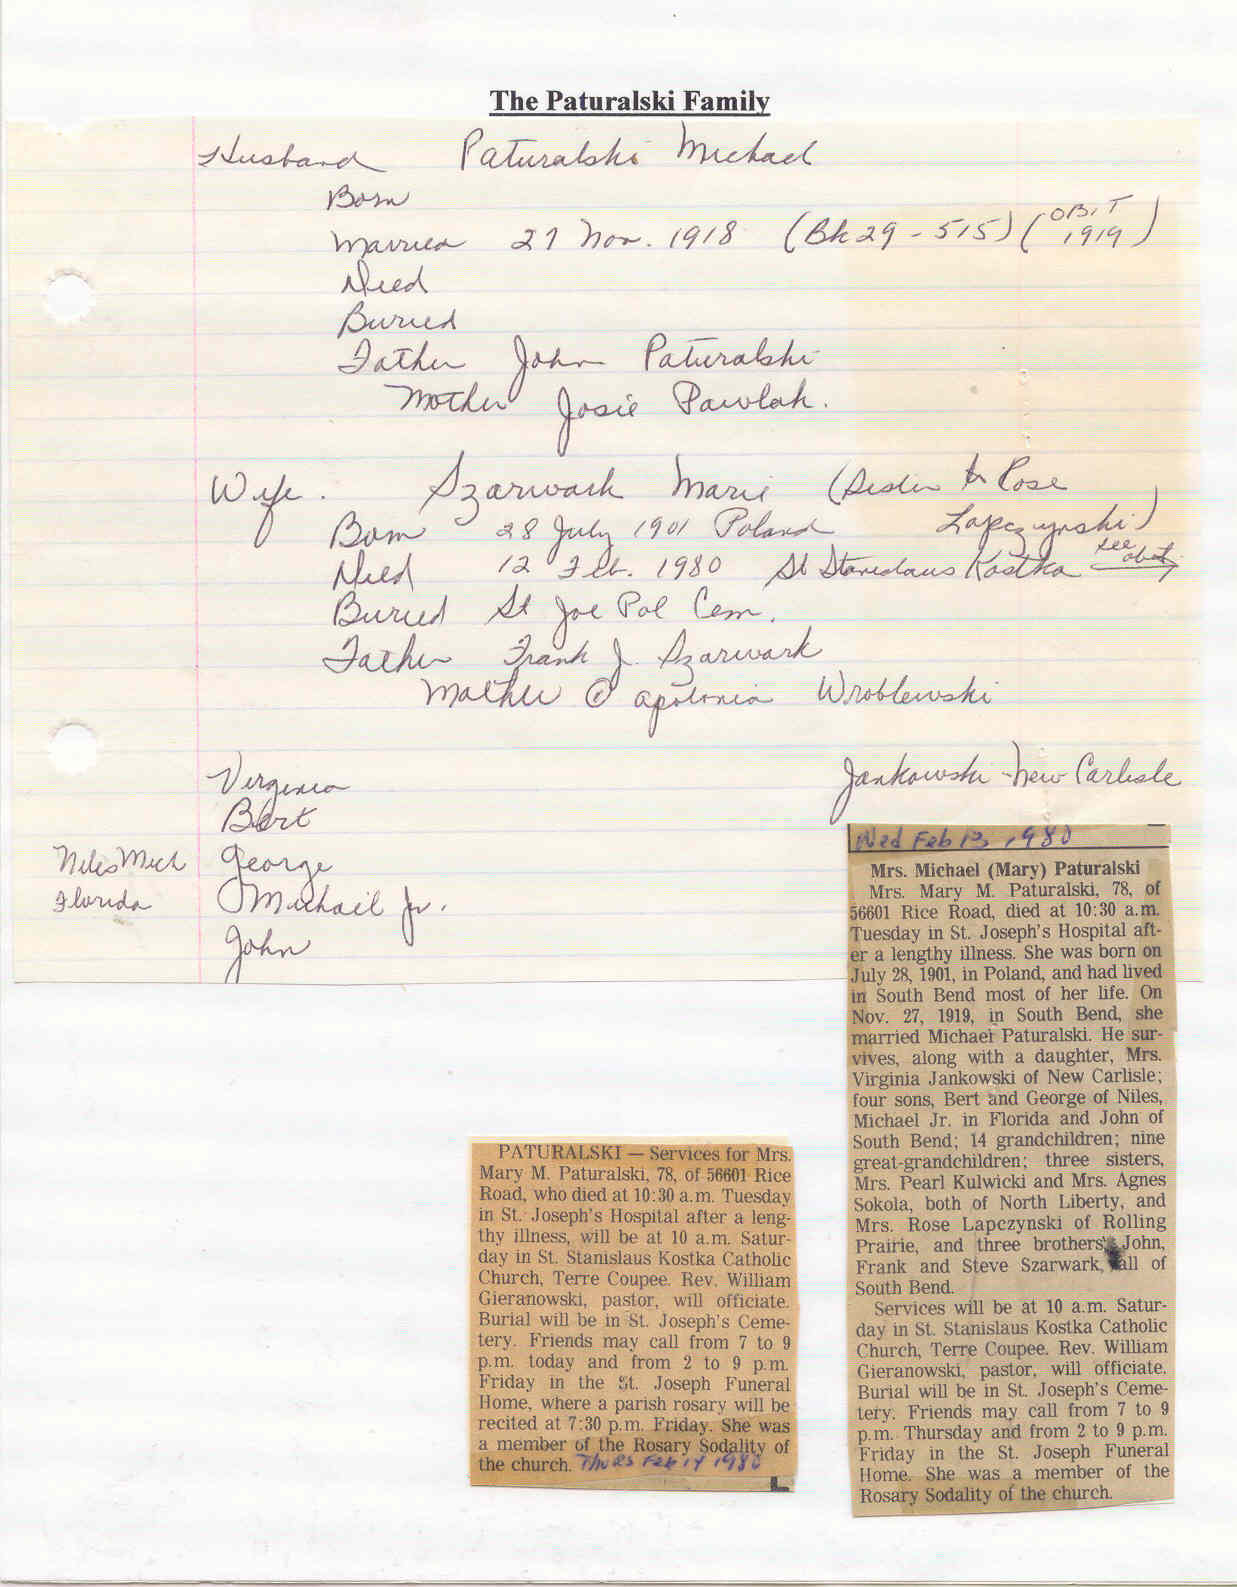 The Paturalski Family
Husband Paturalski Michael
Born
Married 27 Nov. 1918 (Bk 29 - 515) (OBIT 1919)
Died
Buried
Father John Paturalski
Mother Josie Pawlak.
Wife. Szarwark Marie (Sister to Rose
Born 28 July 1901 Poland Lapczynski)
Died 12 Feb. 1980 St Stanislaus Kostka see obit
Buried St Joe Pol Cem.
Father Frank J. Szarwark
Mother © Apolonia Wroblewski
Virginia Jankowski - New Carlisle
Bert
Niles Mich George
Florida Michael Jr.
John
Wed Feb 13, 1980
Mrs. Michael (Mary) Paturalski
Mrs. Mary M. Paturalski, 78, of
56601 Rice Road, died at 10:30 a.m.
Tuesday in St. Joseph's Hospital aft-
er a lengthy illness. She was born on
July 28, 1901, in Poland, and had lived
in South Bend most of her life. On
Nov. 27, 1919, in South Bend, she
married Michael Paturalski. He sur-
vives, along with a daughter, Mrs.
Virginia Jankowski of New Carlisle;
four sons, Bert and George of Niles,
Michael Jr. in Florida and John of
South Bend; 14 grandchildren; nine
great-grandchildren; three sisters,
Mrs. Pearl Kulwicki and Mrs. Agnes
Sokola, both of North Liberty, and
Mrs. Rose Lapczynski of Rolling
Prairie, and three brothers, John,
Frank and Steve Szarwark, all of
South Bend.
Services will be at 10 a.m. Satur-
day in St. Stanislaus Kostka Catholic
Church, Terre Coupee. Rev. William
Gieranowski, pastor, will officiate.
Burial will be in St. Joseph's Ceme-
tery. Friends may call from 7 to 9
p.m. Thursday and from 2 to 9 p.m.
Friday in the St. Joseph Funeral
Home. She was a member of the
Rosary Sodality of the church.
PATURALSKI — Services for Mrs.
Mary M. Paturalski, 78, of 56601 Rice
Road, who died at 10:30 a.m. Tuesday
in St. Joseph's Hospital after a leng-
thy illness, will be at 10 a.m. Satur-
day in St. Stanislaus Kostka Catholic
Church, Terre Coupee. Rev. William
Gieranowski, pastor, will officiate.
Burial will be in St. Joseph's Ceme-
tery. Friends may call from 7 to 9
p.m. today and from 2 to 9 p.m.
Friday in the St. Joseph Funeral
Home, where a parish rosary will be
recited at 7:30 p.m. Friday. She was
a member of the Rosary Sodality of
the church. Thurs Feb 14 1980